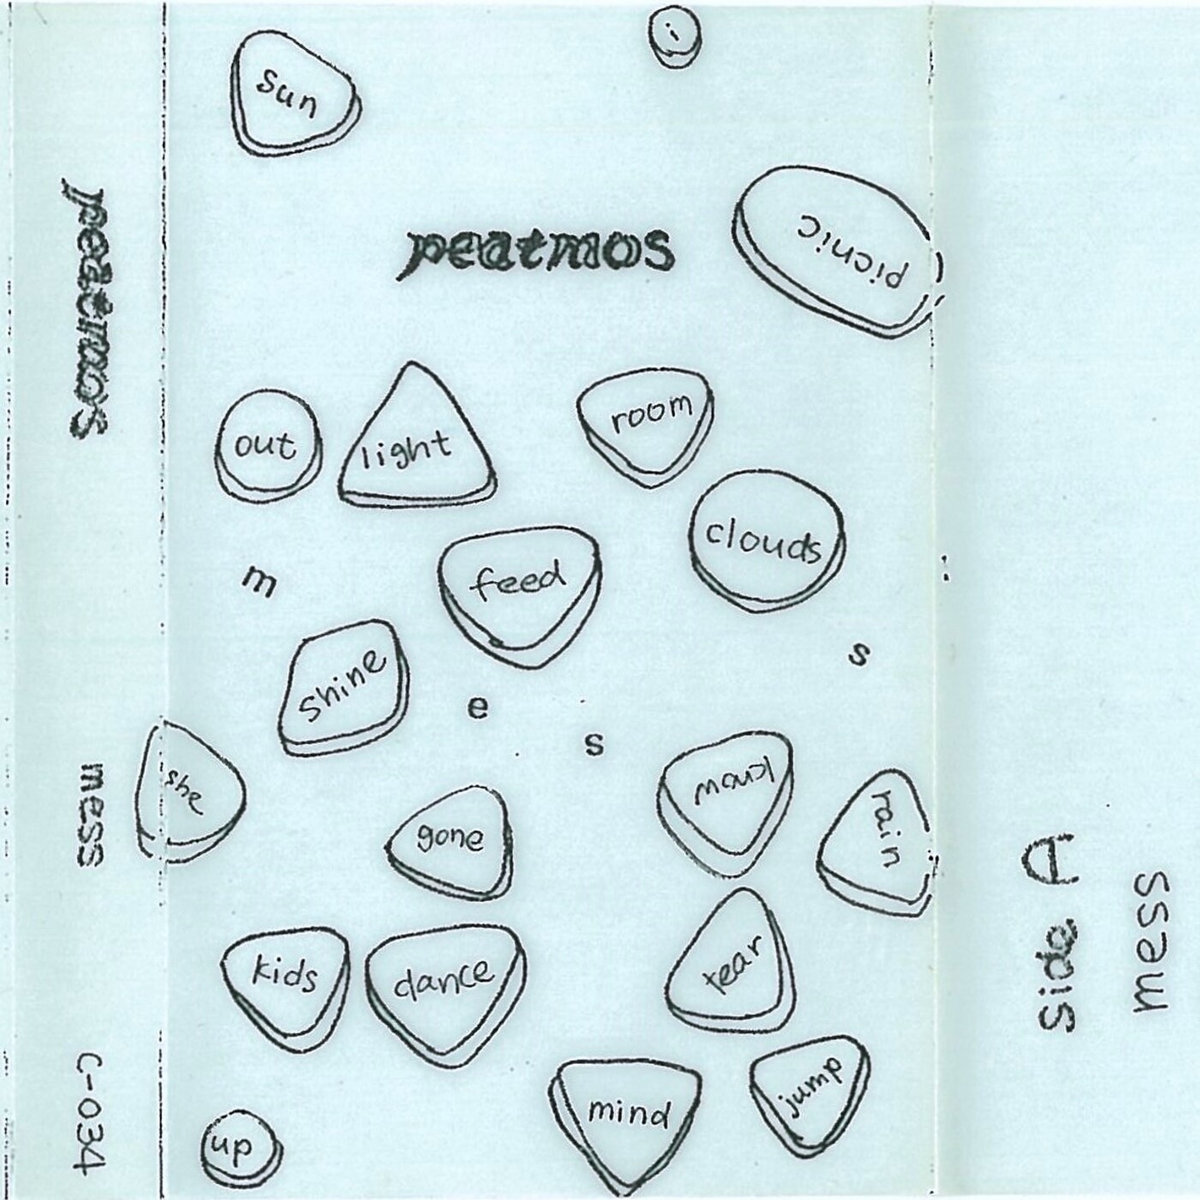 peatmos
mess
C-034
sun
i
picnic
peatmos
out
light
room
clouds
feed
m
shine
e
s
s
she
gone
know
rain
kids
dance
tear
mind
jump
up
side A
mess